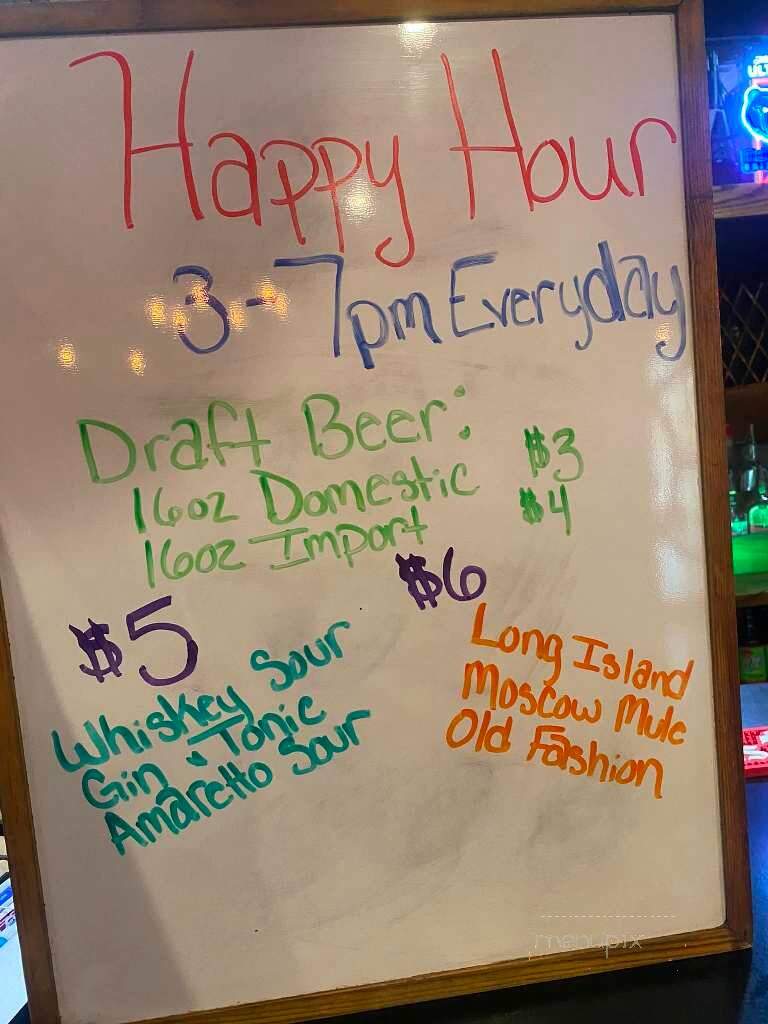 Happy Hour
3-7pm Everyday
Draft Beer:
16oz Domestic $3
16oz Import $4
$5
Whiskey Sour
Gin & Tonic
Amaretto Sour
$6
Long Island
Moscow Mule
Old Fashion
menupix